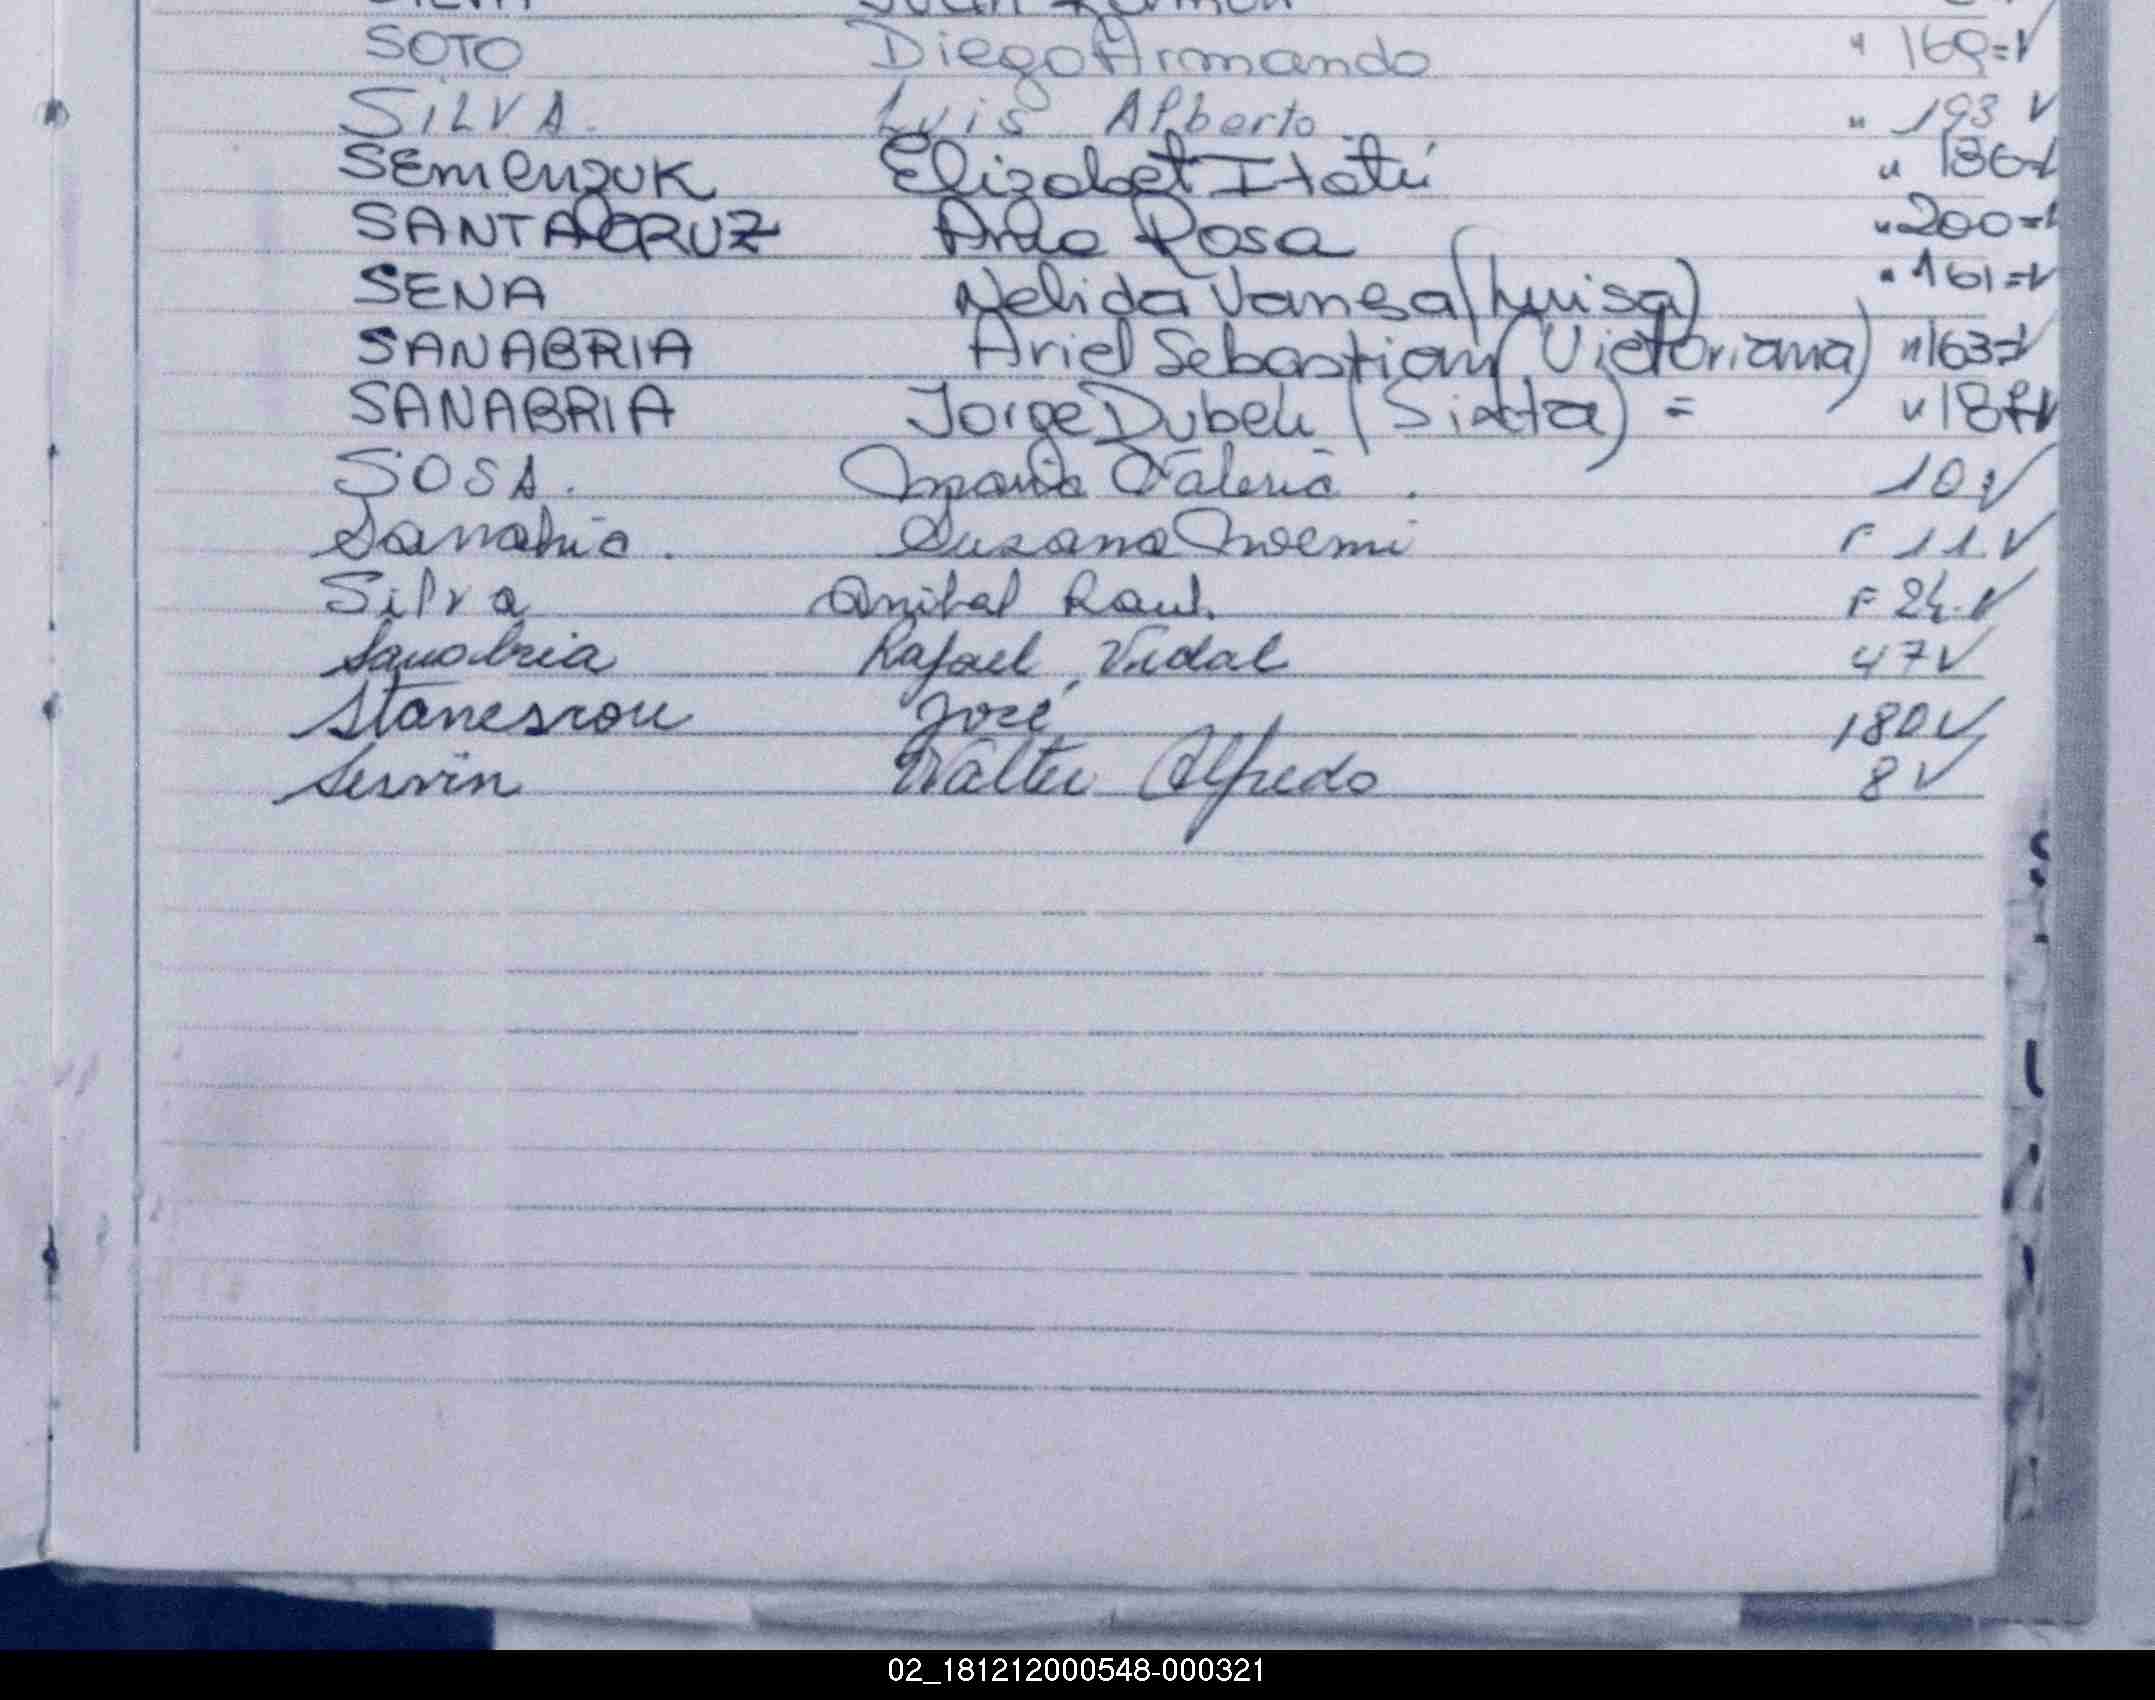 Juan Ramon
SOTO Diego Armando " 169=✓
SILVA. Luis Alberto " 193 ✓
SEMENZUK Elizabet Itatí " 186=✓
SANTA CRUZ Ana Rosa " 200=✓
SENA Nelida Vanesa (Luisa) " 161=✓
SANABRIA Ariel Sebastian (Victoriana) " 163=✓
SANABRIA Jorge Dubeli (Sixta) = " 187✓
SOSA. Maria Valeria . 10 ✓
Sanabria . Susana Noemi F 11 ✓
Silva Anibal Raul. F 24. ✓
Sanabria Rafael Vidal 47 ✓
José 180 ✓
Servin Walter Alfredo 8 ✓
02_181212000548-000321